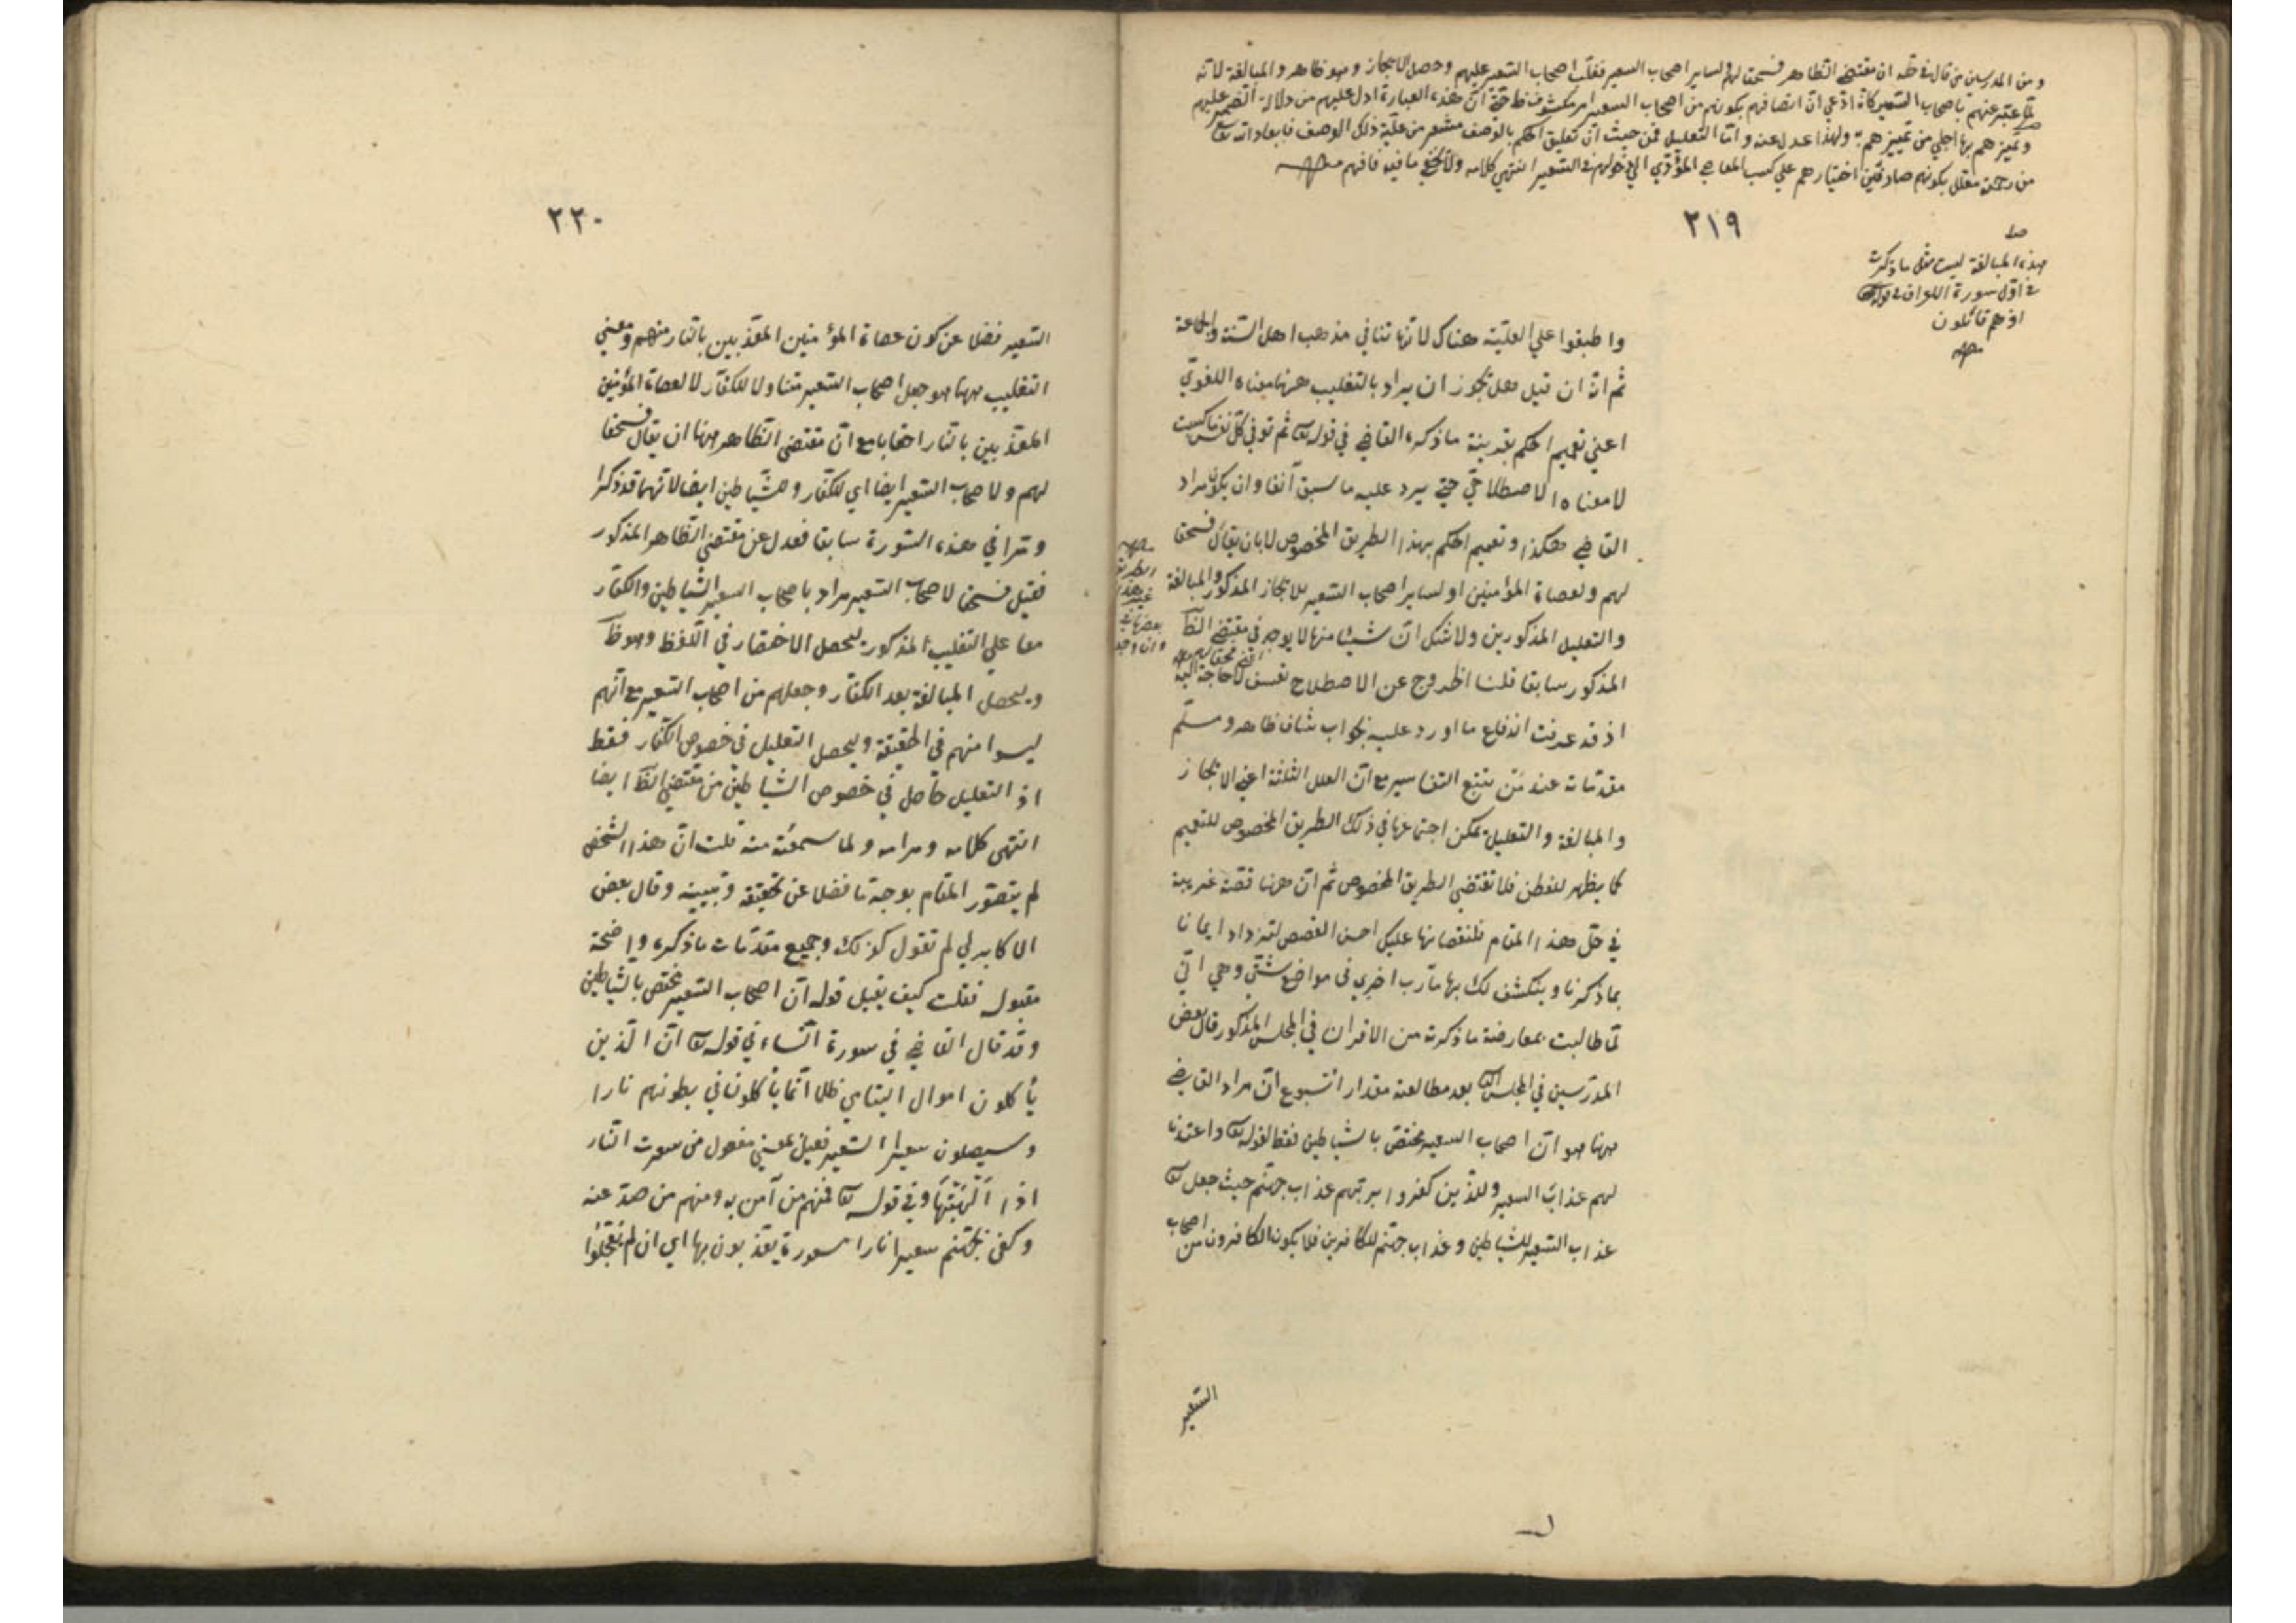 ومن المدرسين من قال في حله ان مقتضى الظاهر فسحقا لهم ولساير اصحاب السعير فغلب اصحاب السعير عليهم وحصل الايجاز وهو ظاهر والمبالغة لانه
لما عبر عنهم باصحاب السعير كانه ادعى ان اتصافهم بكونهم من اصحاب السعير امر مكشوف حتى ان هذه العبارة ادل عليهم من دلالة الضمير عليهم
وتميزهم بها اجلى من تميزهم به ولهذا عدل عنه واما التعليل فمن حيث ان تعليق الحكم بالوصف مشعر من علية ذلك الوصف فابعاد الله تعالى
من رحمته معلل بكونهم صادقين اختيارهم على كسب المعاصي المؤدي الى دخولهم في السعير انتهى كلامه ولا يخفى ما فيه فافهم
٢١٩
هذه المبالغة ليست مثل ما ذكرت
في اول سورة الاعراف في قوله
او هم قائلون
واطبقوا على العلية هناك لانها تنافي مذهب اهل السنة والجماعة
ثم انه ان قيل هل يجوز ان يراد بالتغليب ههنا معناه اللغوي
اعني تعميم الحكم بقرينة ما ذكره القاضي في قوله تعالى ثم توفى كل نفس ما كسبت
لا معناه الاصطلاحي حتى يرد عليه ما سبق آنفا وان يكون مراد
القاضي هكذا وتعميم الحكم بهذا الطريق المخصوص لا بان يقال فسحقا
لهم ولعصاة المؤمنين او لساير اصحاب السعير للايجاز المذكور والمبالغة
والتعليل المذكورين ولا شك ان شيئا منها لا يوجد في مقتضى الظ
المذكور سابقا قلنا الخروج عن الاصطلاح تعسف لا حاجة اليه
اذ قد عرفت اندفاع ما اورد عليه بجواب شاف ظاهر ومسلم
مقدماته عند من يتتبع التفاسير مع ان العلل الثلثة اعني الايجاز
والمبالغة والتعليل يمكن اجتماعها في ذلك الطريق المخصوص للتعميم
كما يظهر للفطن فلا تقتضي الطريق المخصوص ثم ان ههنا قصة غريبة
في حل هذا المقام فلنقصانها عليك احسن القصص لتزداد ايمانا
بما ذكرنا وينكشف لك بها مآرب اخرى في مواضع شتى وهي اني
لما طالبت بمعارضة ما ذكرته من الاقران في المجلس المذكور قال بعض
المدرسين في المجلس بعد مطالعته مقدار اسبوع ان مراد القاضي
ههنا هو ان اصحاب السعير مختص بالشياطين فقط لقوله تعالى واعتدنا
لهم عذاب السعير وللذين كفروا بربهم عذاب جهنم حيث جعل تعالى
عذاب السعير للشياطين وعذاب جهنم للكافرين فلا يكون الكافرون من اصحاب
السعير
٢٢٠
السعير فضلا عن كون عصاة المؤمنين المعذبين بالنار منهم ومعنى
التغليب ههنا هو جعل اصحاب السعير متناولا للكفار لا لعصاة المؤمنين
المعذبين بالنار احقابا مع ان مقتضى الظاهر ههنا ان يقال فسحقا
لهم ولاصحاب السعير ايضا اي للكفار وللشياطين ايضا لانهما قد ذكرا
ومرا في هذه السورة سابقا فعدل عن مقتضى الظاهر المذكور
فقيل فسحقا لاصحاب السعير مراد باصحاب السعير الشياطين والكفار
معا على التغليب المذكور ليحصل الاختصار في اللفظ وهو ظ
ويحصل المبالغة بعد الكفار وجعلهم من اصحاب السعير مع انهم
ليسوا منهم في الحقيقة ويحصل التعليل في خصوص الكفار فقط
اذ التعليل حاصل في خصوص الشياطين من مقتضى الظ ايضا
انتهى كلامه ومرامه ولما سمعته منه قلت ان هذا الشخص
لم يتصور المقام بوجه ما فضلا عن تحقيقه وتبيينه وقال بعض
الاكابر لي لم تقول كذلك وجميع مقدمات ما ذكره واضحة
مقبولة فقلت كيف يقبل قوله ان اصحاب السعير مختص بالشياطين
وقد قال القاضي في سورة النساء في قوله تعالى ان الذين
يأكلون اموال اليتامى ظلما انما يأكلون في بطونهم نارا
وسيصلون سعيرا السعير فعيل بمعنى مفعول من سعرت النار
اذا الهبتها وفي قوله تعالى فمنهم من آمن به ومنهم من صد عنه
وكفى بجهنم سعيرا نارا مسعورة يعذبون بها اي ان لم يعجلوا